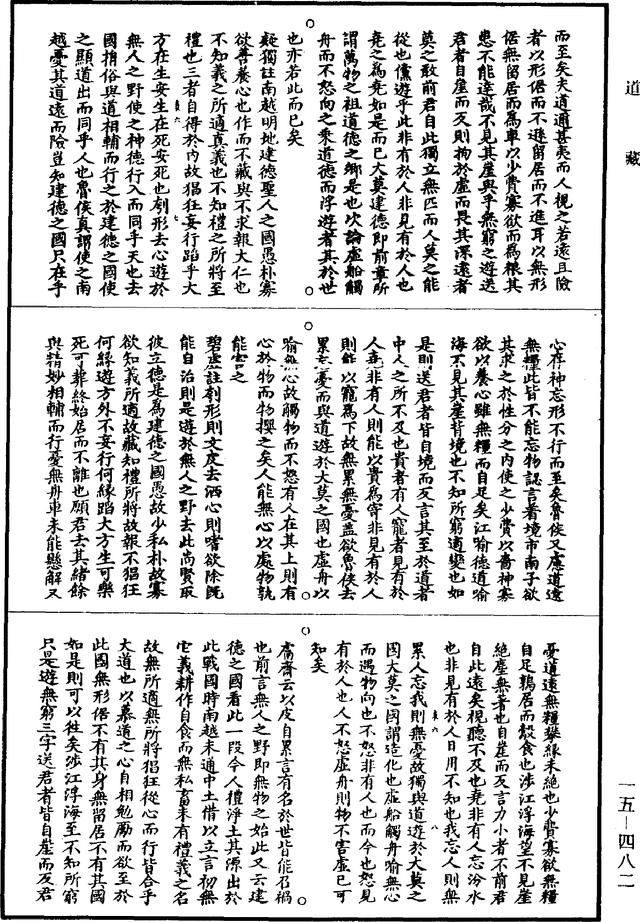 道藏
而至矣夫道通甚夷而人視之若遠且險
者以形倨而不遜留居而不進耳以無形
倨無留居而為車以少費寡欲而為糧其
患不能達哉不見其崖與乎無窮之遊送
君者自崖而反則拘於虛而畏其深遠者
莫之敢前君自此獨立無匹而人莫之能
從也儻遊乎此非有於人非見有於人也
堯之為堯如是而已大莫建德即前章所
謂萬物之祖道德之鄉是也次論虛船觸
舟而不怒向之乘道德而浮遊者其於世
也亦若此而已矣
疑獨註南越明地建德聖人之國愚朴寡
欲善養心也作而不藏與不求報大仁也
不知義之所適真義也不知禮之所將至
禮也三者自得於內故猖狂妄行蹈乎大
方在生安生在死安死也刳形去心遊於
無人之野使之神德行入而同乎天也去
國捐俗與道相輔而行之於建德之國使
之顯道出而同乎人也魯侯真謂使之南
越憂其道遠而險豈知建德之國只在乎
心存神忘形不行而至矣魯侯又慮道遠
無糧此皆不能忘物認言著境市南子欲
其求之於性分之內使之少費以嗇神寡
欲以養心雖無糧而自足矣江喻德道喻
海不見其崖皆境也不知所窮適變也如
是則送君者皆自境而反言其至於道者
中人之所不及也貴者有人寵者見有於
人堯非有人則能以貴為寄非見有於人
則能以寵為下故無累無憂蓋欲魯侯去
累忘憂而與道遊於大莫之國也虛舟以
喻無心故觸物而不怒有人在其上則有
心於物而物攖之矣人能無心以處物孰
能害之
碧虛註刳形則文皮去洒心則嗜欲除既
能自治則是遊於無人之野去此尚賢取
彼立德是為建德之國愚故少私朴故寡
欲知義所適故藏知禮所將故報不猖狂
何緣遊方外不妄行何緣蹈大方生可樂
死可葬終始居而不離也願君去其緒餘
與精妙相輔而行憂無舟車未能懸解又
憂道遠無糧攀緣未絕也少費寡欲無糧
自足鶉居而鷇食也涉江浮海望不見崖
絕塵無著也自崖而反言力小者不前君
自此遠矣視聽不及也堯非有人忘汾水
也非見有於人日用不知也我忘人則無
累人忘我則無憂故獨與道遊於大莫之
國大莫之國謂造化也虛船觸舟喻無心
而遇物向也不怒非有人也而今也怒見
有於人也人不怒虛舟則物不害虛己可
知矣
鬳齋云以皮自累言有名於世皆能召禍
也前言無人之野即無物之始此又云建
德之國看此一段令人禮淨土其源出於
此戰國時南越未通中土借以立言初無
它義耕作自食而無私畜未有禮義之名
故無所適無所將猖狂從心而行皆合乎
大道也以慕道之心自相勉勵而欲至於
此國無形倨不有其身無留居不有其國
如是則可以往矣涉江浮海至不知所窮
只是遊無窮三字送君者皆自崖而反君
一五—四八二